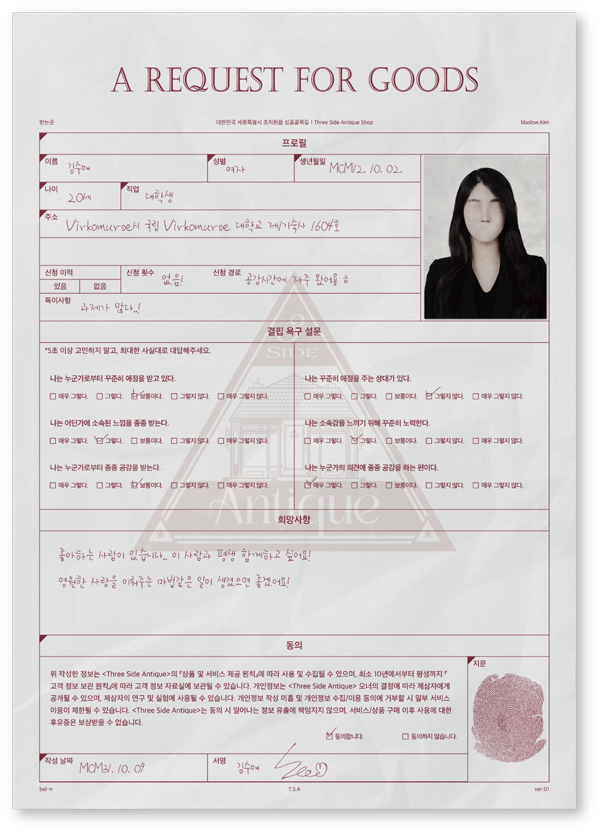 A REQUEST FOR GOODS
받는곳
대한민국 세종특별시 조치원읍 섭골골목길 I Three Side Antique Shop
Maslow.Kim
프로필
이름 김수애
성별 여자
생년월일 MCM12. 10. 02.
나이 20세
직업 대학생
주소 Virkomurse시 국립 Virkomurse 대학교 제1기숙사 1604호
신청 이력
있음 없음
신청 횟수 없음!
신청 경로 공강시간에 자주 왔어용 ㅎ
특이사항 과제가 많다..!
결핍 욕구 설문
*5초 이상 고민하지 말고, 최대한 사실대로 대답해주세요.
나는 누군가로부터 꾸준히 애정을 받고 있다.
매우 그렇다. 그렇다. 보통이다. 그렇지 않다. 매우 그렇지 않다.
나는 어딘가에 소속된 느낌을 종종 받는다.
매우 그렇다. 그렇다. 보통이다. 그렇지 않다. 매우 그렇지 않다.
나는 누군가로부터 종종 공감을 받는다.
매우 그렇다. 그렇다. 보통이다. 그렇지 않다. 매우 그렇지 않다.
나는 꾸준히 애정을 주는 상대가 있다.
매우 그렇다. 그렇다. 보통이다. 그렇지 않다. 매우 그렇지 않다.
나는 소속감을 느끼기 위해 꾸준히 노력한다.
매우 그렇다. 그렇다. 보통이다. 그렇지 않다. 매우 그렇지 않다.
나는 누군가의 의견에 종종 공감을 하는 편이다.
매우 그렇다. 그렇다. 보통이다. 그렇지 않다. 매우 그렇지 않다.
3
SIDE
Antique
희망사항
좋아하는 사람이 있습니다.. 이 사람과 평생 함께하고 싶어요!
영원한 사랑을 이뤄주는 마법같은 일이 생겼으면 좋겠어요!
동의
위 작성한 정보는 <Three Side Antique>의 『상품 및 서비스 제공 원칙』에 따라 사용 및 수집될 수 있으며, 최소 10년에서부터 평생까지 『
고객 정보 보관 원칙』에 따라 고객 정보 자료실에 보관될 수 있습니다. 개인정보는 <Three Side Antique> 오너의 결정에 따라 제삼자에게
공개될 수 있으며, 제삼자의 연구 및 실험에 사용될 수 있습니다. 개인정보 작성 미흡 및 개인정보 수집/이용 동의에 거부할 시 일부 서비스
이용이 제한될 수 있습니다. <Three Side Antique>는 동의 시 일어나는 정보 유출에 책임지지 않으며, 서비스/상품 구매 이후 사용에 대한
후유증은 보상받을 수 없습니다.
동의합니다. 동의하지 않습니다.
지문
작성 날짜 MCM31. 10. 09
서명 김수애
bel-n
T.S.A
ver.01